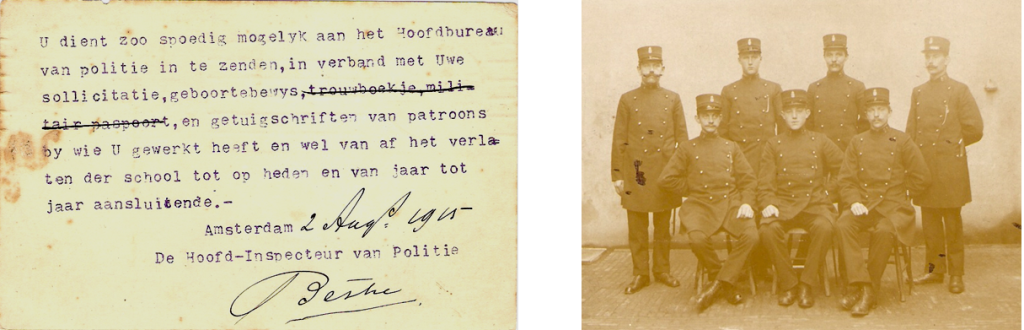 U dient zoo spoedig mogelyk aan het Hoofdbureau
van politie in te zenden,in verband met Uwe
sollicitatie,geboortebewys,trouwboekje,mili-
tair paspoort,en getuigschriften van patroons
by wie U gewerkt heeft en wel van af het verla-
ten der school tot op heden en van jaar tot
jaar aansluitende.-
Amsterdam 2 Augs. 1915
De Hoofd-Inspecteur van Politie